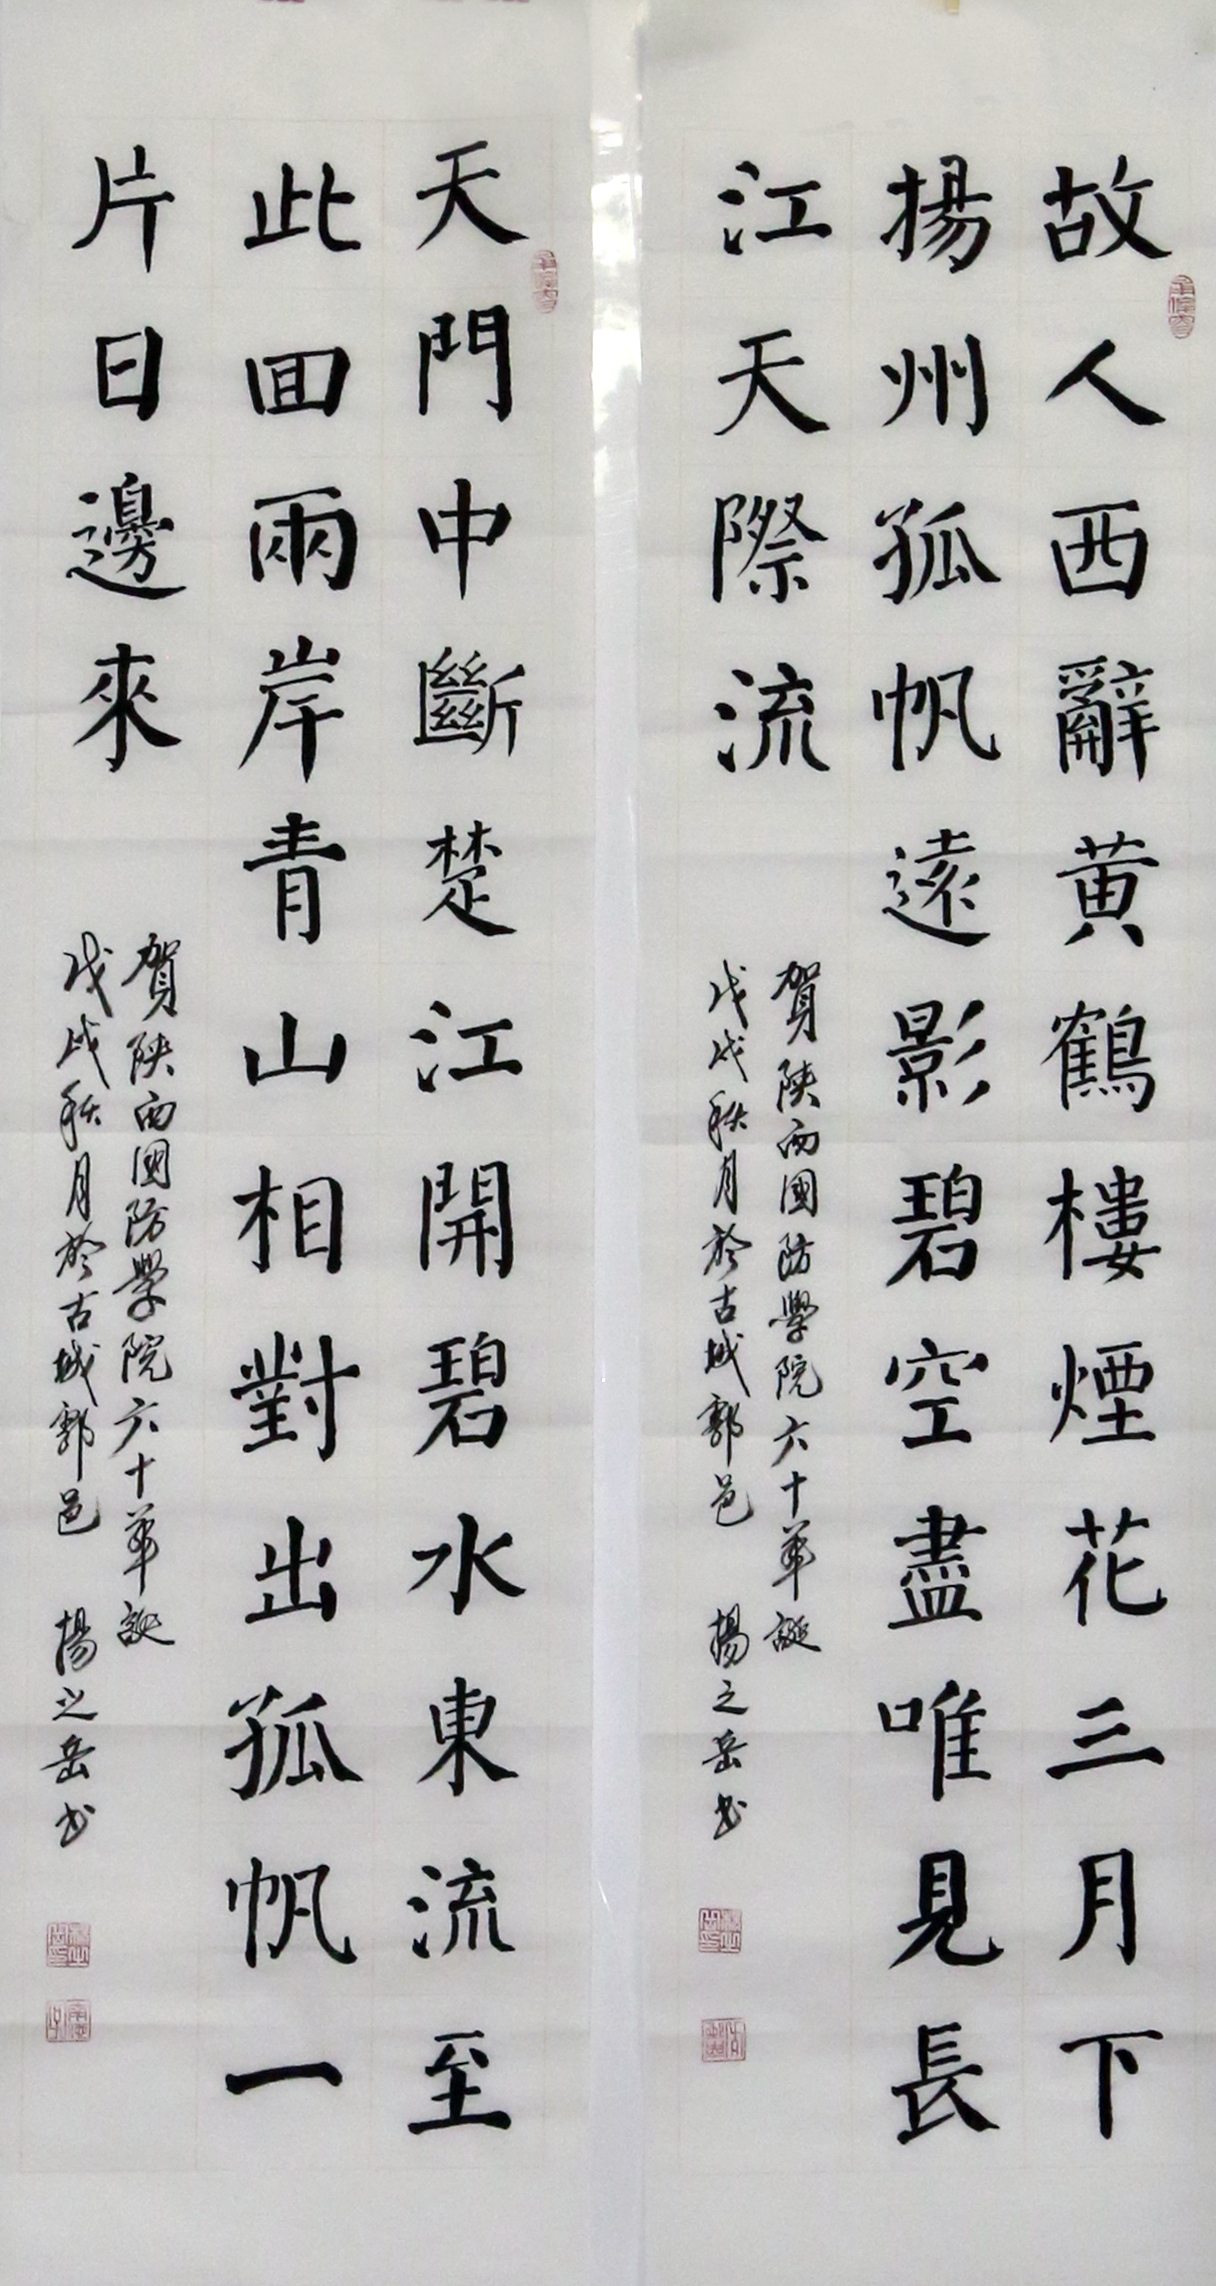 故人西辭黄鶴樓煙花三月下
揚州孤帆遠影碧空盡唯見長
江天際流
賀陝西國防學院六十華誕
戊戌秋月於古城鄠邑 楊之岳书
天門中斷楚江開碧水東流至
此回兩岸青山相對出孤帆一
片日邊來
賀陝西國防學院六十華誕
戊戌秋月於古城鄠邑 楊之岳书